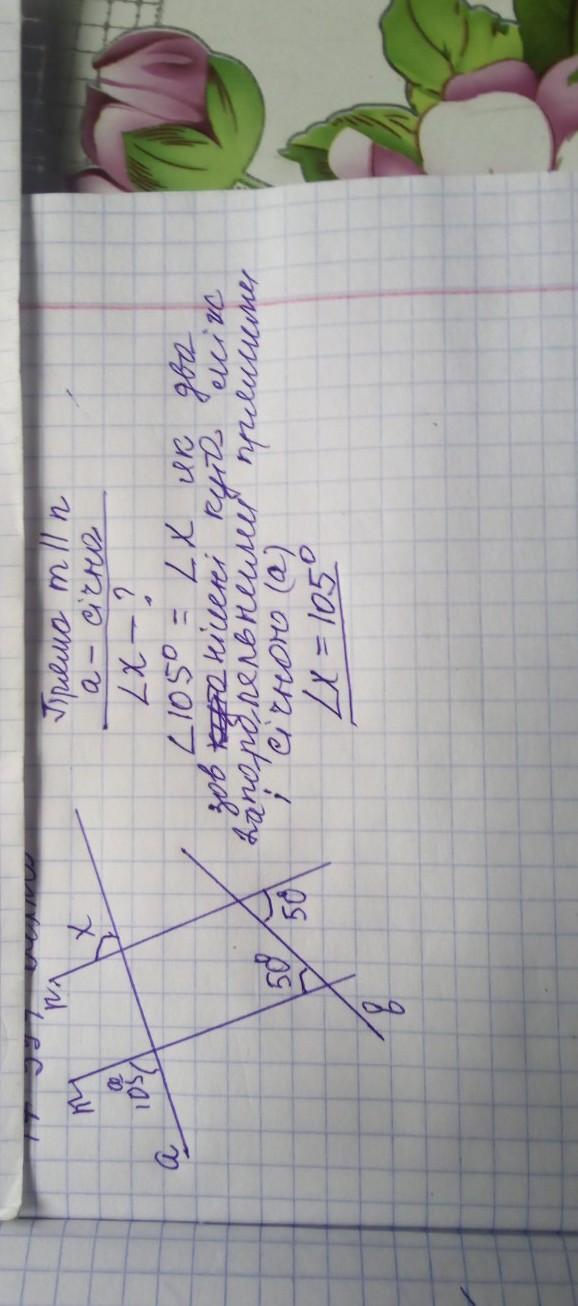 Прямо m || n
a - січна
∠x - ?
∠105° = ∠x як два
зовнішні кута між
паралельними прямими
і січною (a)
∠x = 105°
m
n
x
105°
a
50°
50°
b